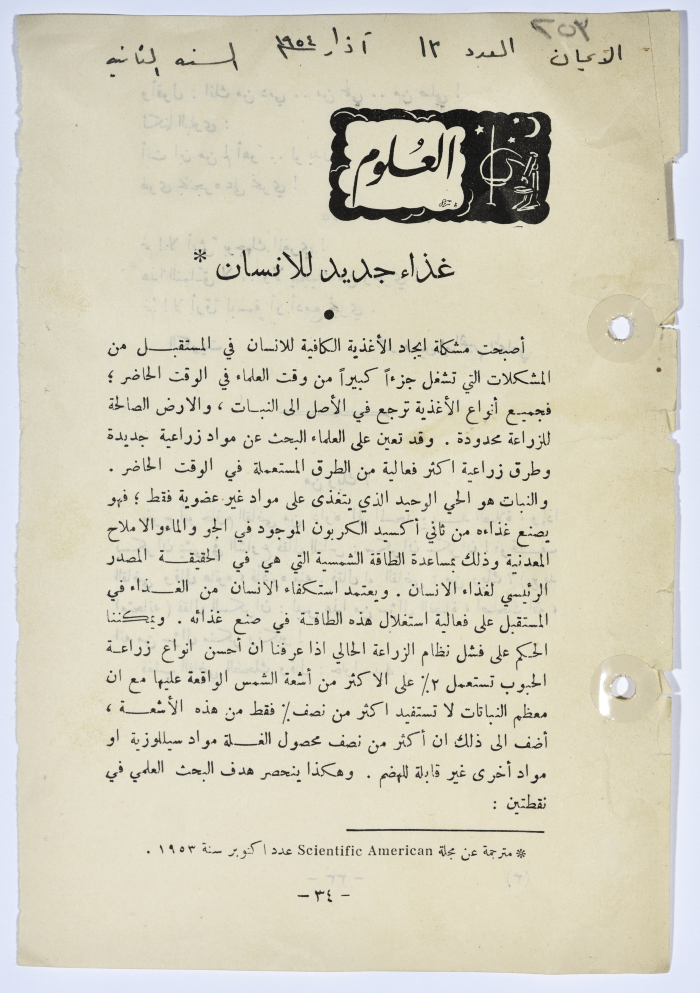 ٣٥٢
الايمان العدد ١٢ آذار ١٩٥٤ السنه الثانيه
العُلوم
غذاء جديد للانسان *
●
أصبحت مشكلة ايجاد الأغذية الكافية للانسان في المستقبـــل من
المشكلات التي تشغل جزءاً كبيراً من وقت العلماء في الوقت الحاضر ؛
فجميـع أنواع الأغذية ترجع في الأصل الى النبـات ، والارض الصالحة
للزراعة محدودة . وقد تعين على العلماء البحث عن مواد زراعية جديدة
وطرق زراعية اكثر فعالية من الطرق المستعملة في الوقت الحاضر .
والنبات هو الحي الوحيد الذي يتغذى على مواد غير عضوية فقط ؛ فهو
يصنع غذاءه من ثاني أكسيد الكربون الموجود في الجو والماءوالاملاح
المعدنية وذلك بمساعدة الطاقة الشمسية التي هي في الحقيقــة المصدر
الرئيسي لغذاء الانسان . ويعتمد استكفاء الانسان من الغـــذاء في
المستقبل على فعالية استغلال هذه الطاقــة في صنع غذائه . ويمكننا
الحكم على فشل نظام الزراعة الحالي اذا عرفنا ان أحسن انواع زراعــة
الحبوب تستعمل ٢٪ على الاكثر من أشعة الشمس الواقعة عليها مع ان
معظم النباتات لا تستفيد اكثر من نصف٪ فقط من هذه الأشعـــة ،
أضف الى ذلك ان أكثر من نصف محصول الغـــلة مواد سيللوزية او
مواد أخرى غير قابلة للهضم . وهكذا ينحصر هدف البحث العلمي في
نقطتين :
* مترجمة عن مجلة Scientific American عدد اكتوبر سنة ١٩٥٣ .
– ٣٤ –